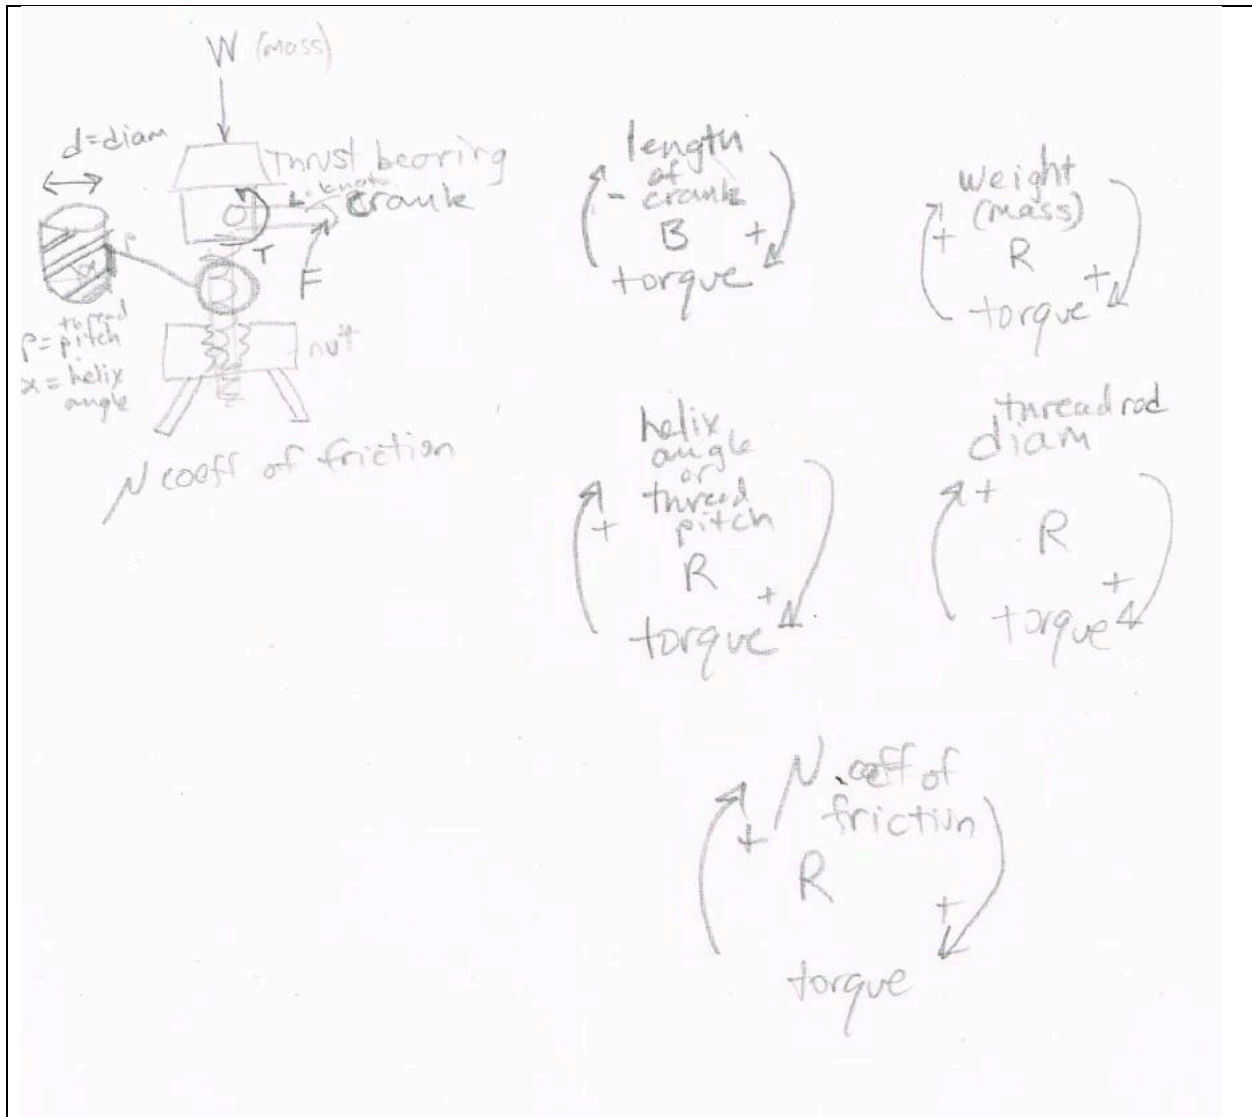 W (mass)
d=diam
Thrust bearing
L=length
crank
T
F
P
α
P= thread
pitch
α = helix
angle
nut
μ coeff of friction
length
of
- crank
B +
torque
weight
(mass)
+ R
+
torque
helix
angle
or
thread
+ pitch
R
+
torque
thread rod
diam
+
R
+
torque
μ coeff of
+ friction
R
+
torque